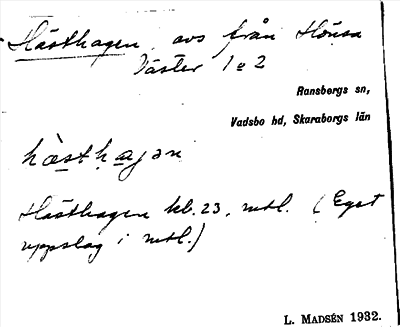 Hästhagen, avs från Hönsa
Väster 1 o 2
Ransbergs sn,
Vadsbo hd, Skaraborgs län
hàsthagən
Hästhagen kb. 23, mtl. (Eget
uppslag i mtl.)
L. MADSÉN 1932.